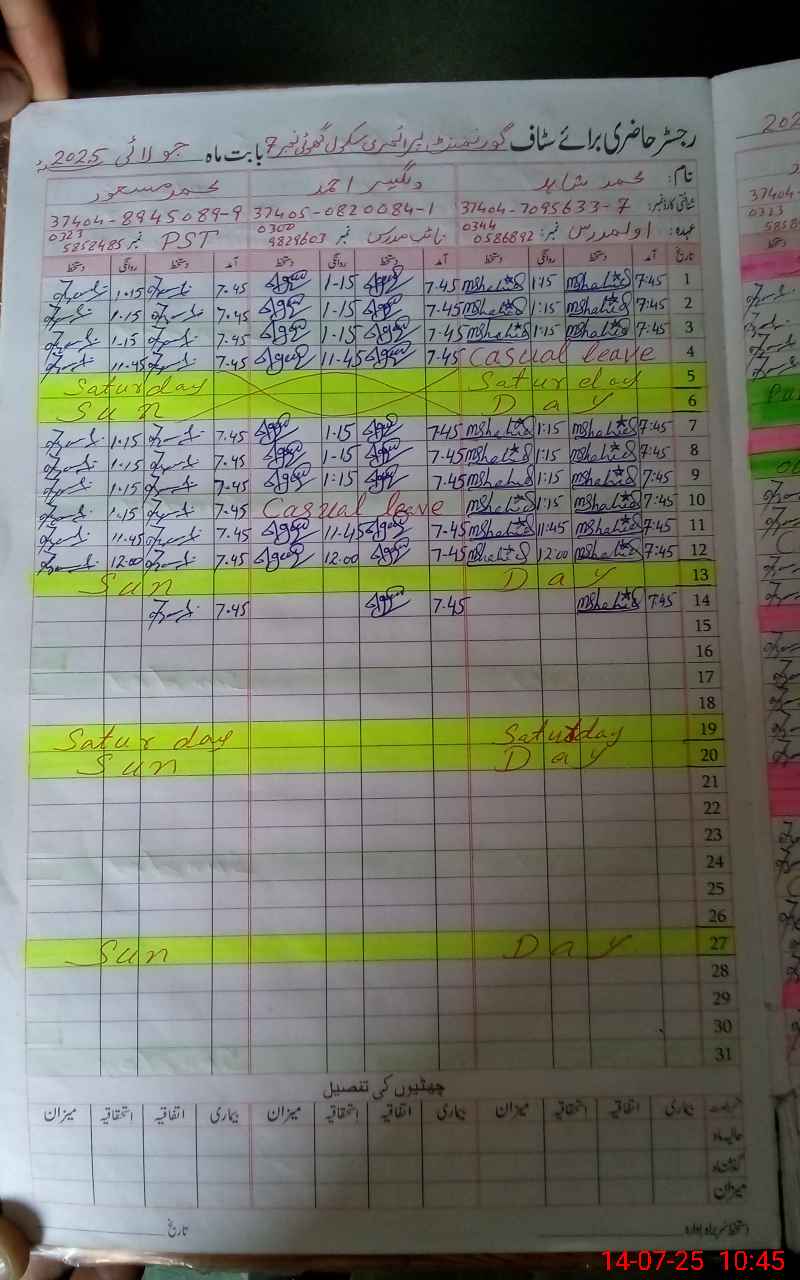 رجسٹر حاضری برائے سٹاف گورنمنٹ پرائمری سکول گھوئی نمبر 7 بابت ماہ جولائی 2025
نام: محمد شاہد دلگیر احمد محمد مسعود
شناختی کارڈ نمبر: 37404-7095633-7 37405-0820084-1 37404-8945089-9
عہدہ: اول مدرس نمبر: 0344 0586892 نائب مدرس نمبر 0300 9829603 PST نمبر 0323 5852485
تاریخ آمد دستخط روانگی دستخط آمد دستخط روانگی دستخط آمد دستخط روانگی دستخط
1 7:45 MShahid 1:15 MShahid 7.45 1-15 7.45 1.15
2 7:45 MShahid 1:15 MShahid 7.45 1-15 7.45 1.15
3 7:45 MShahid 1:15 MShahid 7.45 1-15 7.45 1.15
4 Casual leave 7.45 11-45 7.45 11.45
5 Saturday Saturday
6 Sun Day
7 7:45 MShahid 1:15 MShahid 7.45 1.15 7.45 1.15
8 7:45 MShahid 1:15 MShahid 7.45 1-15 7.45 1.15
9 7:45 MShahid 1:15 MShahid 7.45 1:15 7.45 1.15
10 7:45 MShahid 1:15 MShahid Casual leave 7.45 1.15
11 7:45 MShahid 11:45 MShahid 7.45 11.45 7.45 11.45
12 7:45 MShahid 12:00 MShahid 7.45 12:00 7.45 12.00
13 Sun Day
14 7:45 MShahid 7.45 7.45
15
16
17
18
19 Saturday Saturday
20 Sun Day
21
22
23
24
25
26
27 Sun Day
28
29
30
31
چھٹیوں کی تفصیل
بیماری اتفاقیہ استحقاقیہ میزان بیماری اتفاقیہ استحقاقیہ میزان بیماری اتفاقیہ استحقاقیہ میزان
حالیہ ماہ
گذشتہ ماہ
میزان
دستخط سربراہ ادارہ تاریخ
14-07-25 10:45